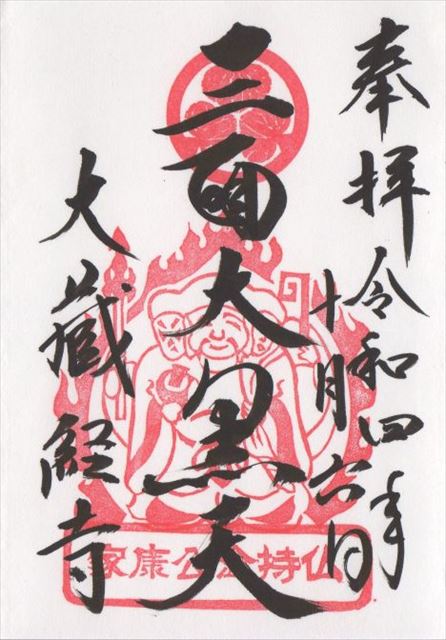 奉拝
令和四年
十月六日
三面大黒天
大蔵経寺
家康公
持仏